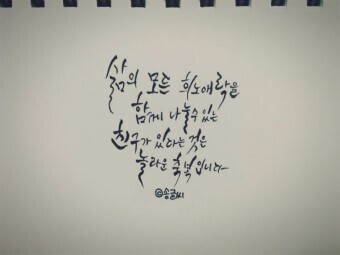 삶의 모든 희노애락을
함께 나눌수 있는
친구가 있다는 것은
놀라운 축복입니다~
@송글씨